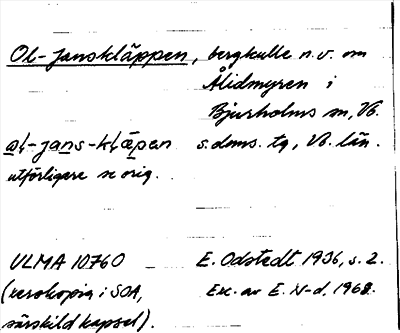 Ol-Janskläppen, bergkulle n.v. om
Ålidmyren i
Bjurholms sn, Vb.
ɷɫ-jans-kɫäpen s.dms. tg, Vb. län.
utförligare se orig.
ULMA 10760 E. Odstedt 1936, s. 2.
(xerokopia i SOA, Exc. av E. N-d. 1968.
särskild kapsel).